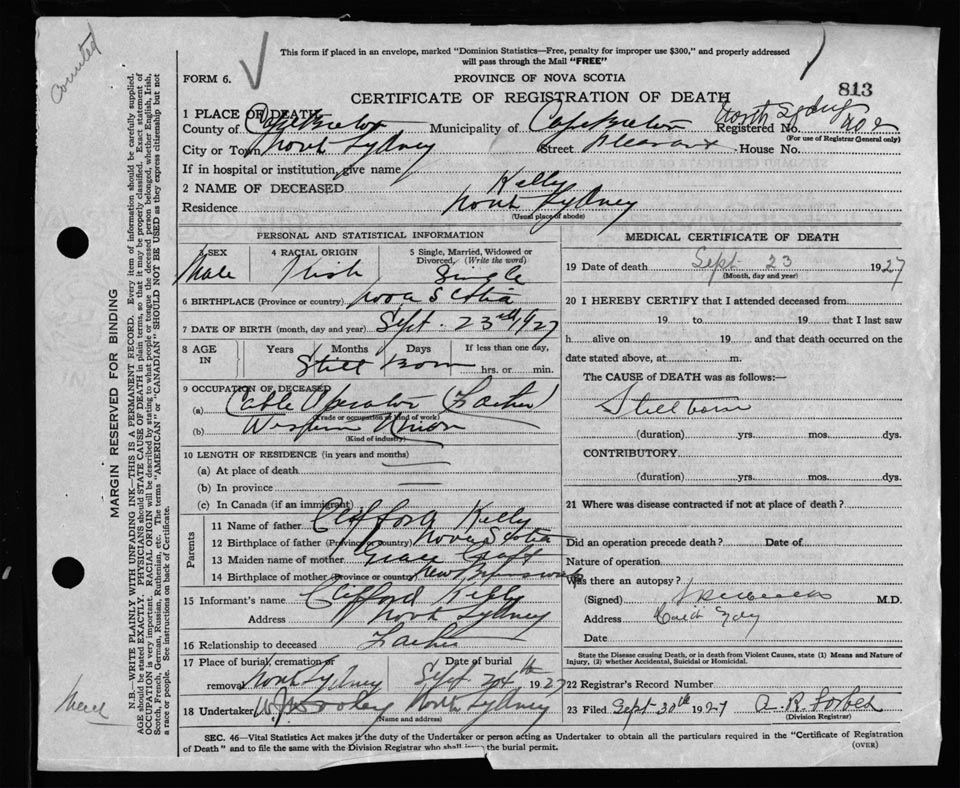 counted
This form if placed in an envelope, marked "Dominion Statistics—Free, penalty for improper use $300," and properly addressed
will pass through the Mail "FREE"
FORM 6.
PROVINCE OF NOVA SCOTIA
813
CERTIFICATE OF REGISTRATION OF DEATH
North Sydney
1 PLACE OF DEATH
County of Cape Breton Municipality of Cape Breton Registered No.
(For use of Registrar General only)
City or Town North Sydney Street Pleasant House No.
If in hospital or institution, give name
2 NAME OF DECEASED Kelly
Residence North Sydney
(Usual place of abode)
PERSONAL AND STATISTICAL INFORMATION
3 SEX Male
4 RACIAL ORIGIN Irish
5 Single, Married, Widowed or Divorced, (Write the word) Single
6 BIRTHPLACE (Province or country) Nova Scotia
7 DATE OF BIRTH (month, day and year) Sept. 23rd, 1927
8 AGE IN Years Months Days If less than one day, hrs. or min.
Still Born
9 OCCUPATION OF DECEASED
(a) Cable Operator (Father)
(Trade or occupation or kind of work)
(b) Western Union
(Kind of industry)
10 LENGTH OF RESIDENCE (in years and months)
(a) At place of death
(b) In province
(c) In Canada (if an immigrant)
Parents
11 Name of father Clifford Kelly
12 Birthplace of father (Province or country) Nova Scotia
13 Maiden name of mother Grace
14 Birthplace of mother (Province or country) New Brunswick
15 Informant's name Clifford Kelly
Address North Sydney
16 Relationship to deceased Father
17 Place of burial, cremation or removal North Sydney Date of burial Sept 24th 1927
18 Undertaker North Sydney
(Name and address)
MEDICAL CERTIFICATE OF DEATH
19 Date of death Sept 23 1927
(Month, day and year)
20 I HEREBY CERTIFY that I attended deceased from
19 to 19 that I last saw
h alive on 19 and that death occurred on the
date stated above, at m.
The CAUSE of DEATH was as follows:—
Stillborn
(duration) yrs. mos. dys.
CONTRIBUTORY
(duration) yrs. mos. dys.
21 Where was disease contracted if not at place of death?
Did an operation precede death? Date of
Nature of operation
Was there an autopsy?
(Signed) M.D.
Address
Date
State the Disease causing Death, or in death from Violent Causes, state (1) Means and Nature of
Injury, (2) whether Accidental, Suicidal or Homicidal.
22 Registrar's Record Number
23 Filed Sept 30th 1927 A. R. Forbes
(Division Registrar)
SEC. 46—Vital Statistics Act makes it the duty of the Undertaker or person acting as Undertaker to obtain all the particulars required in the "Certificate of Registration
of Death" and to file the same with the Division Registrar who shall issue the burial permit.
(OVER)
MARGIN RESERVED FOR BINDING
N.B.—WRITE PLAINLY WITH UNFADING INK—THIS IS A PERMANENT RECORD. Every item of information should be carefully supplied.
AGE should be stated EXACTLY. PHYSICIANS should STATE CAUSE OF DEATH in plain terms, so that it may be properly classified. Exact statement of
OCCUPATION is very important. RACIAL ORIGIN will be described by stating to what people or tongue the deceased person belonged, whether English, Irish,
Scotch, French, German, Russian, Ruthenian, etc. The terms "AMERICAN" or "CANADIAN" SHOULD NOT BE USED as they express citizenship but not
a race or people. See instructions on back of Certificate.